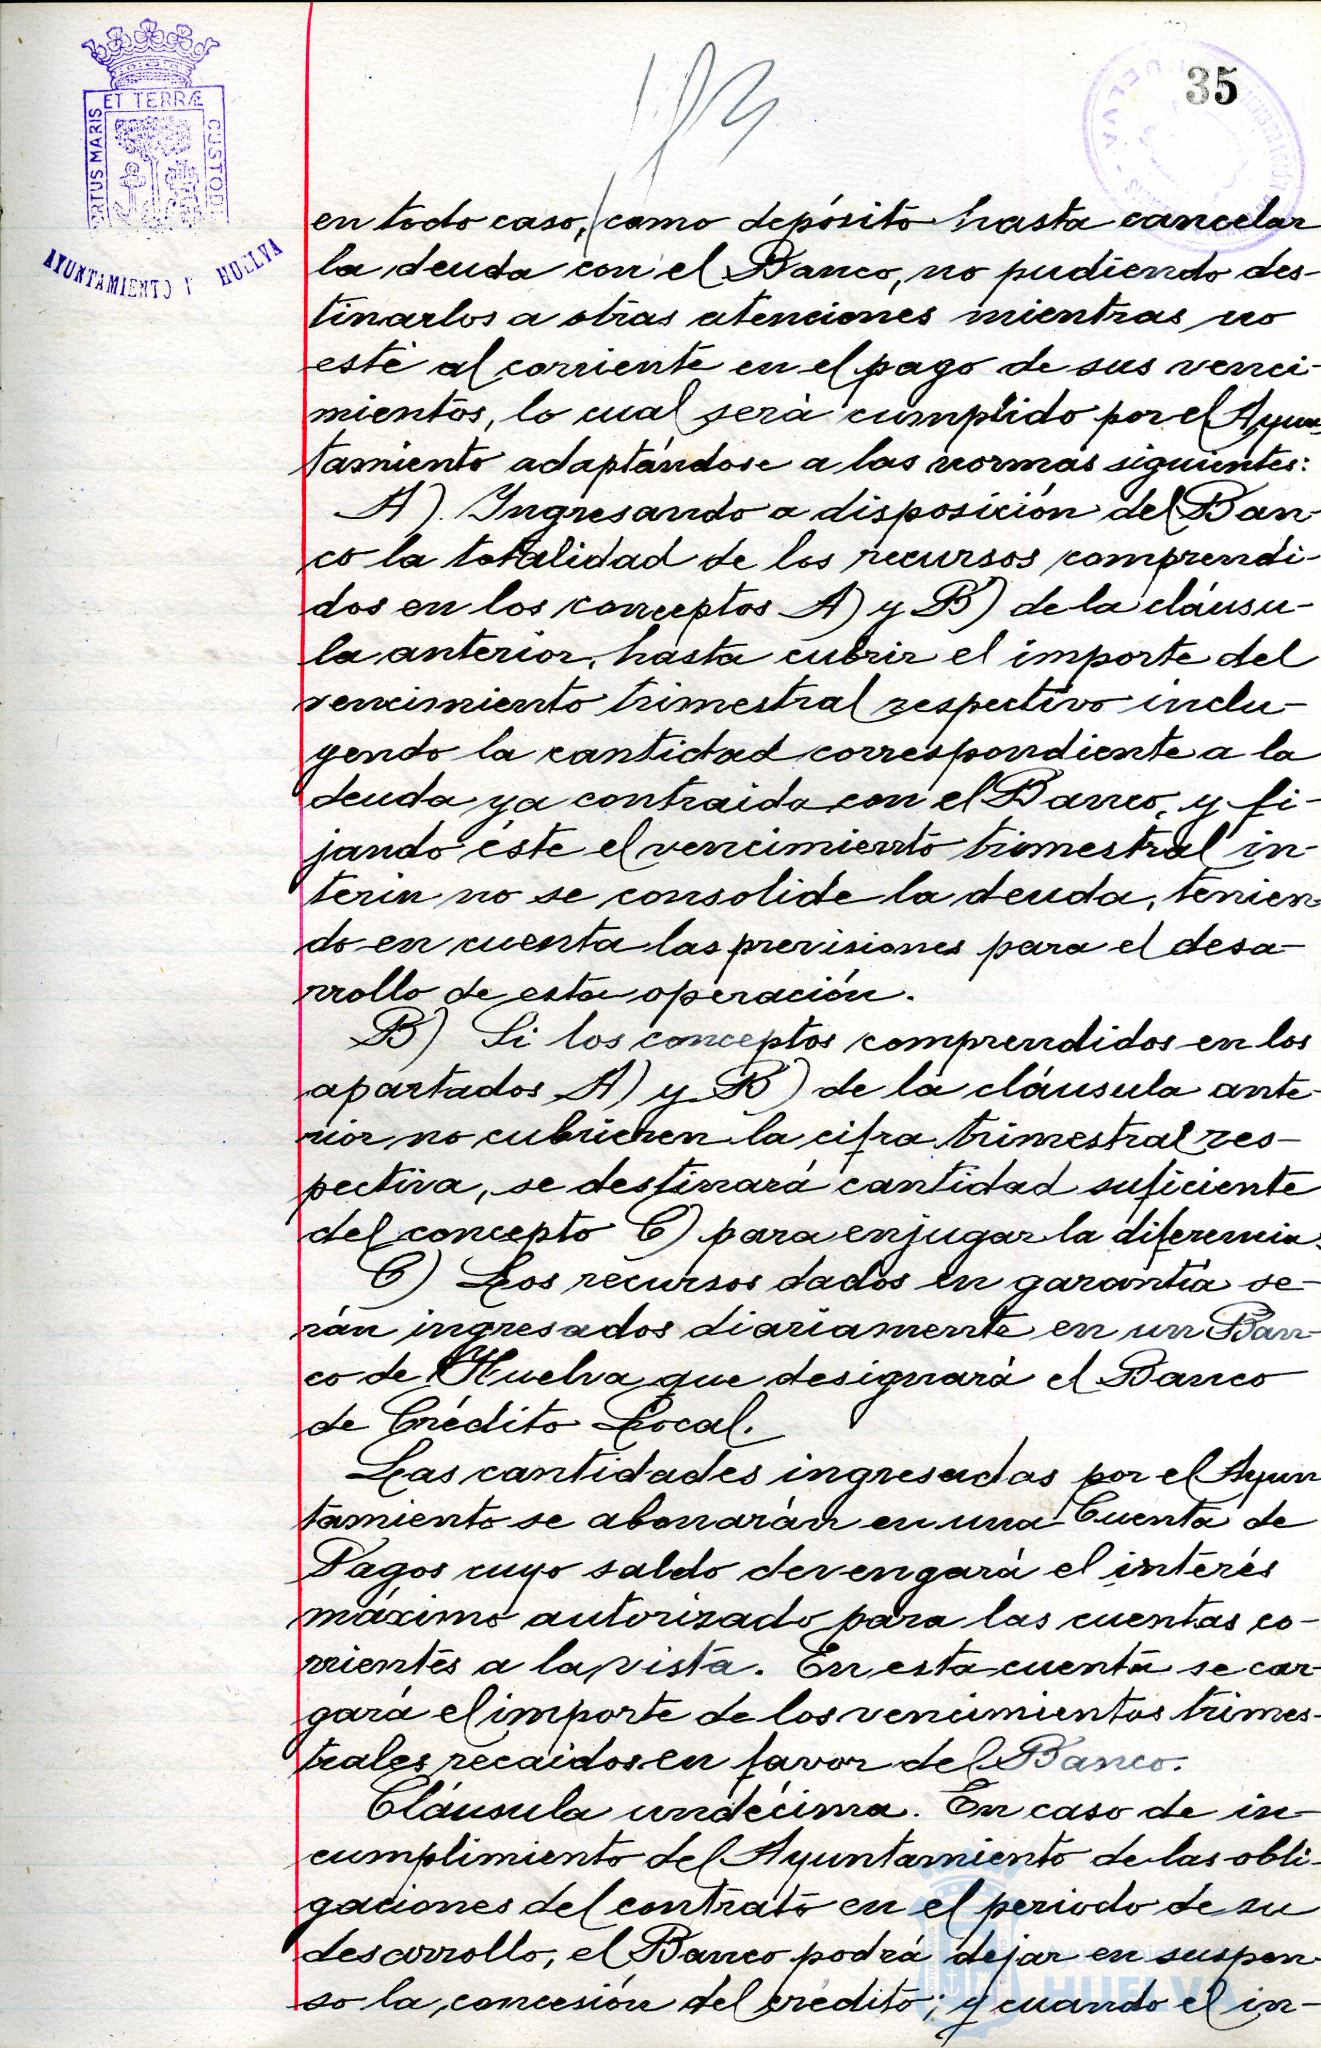 193
35
PORTUS MARIS ET TERRÆ CUSTODI
AYUNTAMIENTO HUELVA
HUELVA
en todo caso, como depósito hasta cancelar
la deuda con el Banco, no pudiendo des-
tinarlos a otras atenciones mientras no
esté al corriente en el pago de sus venci-
mientos, lo cual será cumplido por el Ayun-
tamiento adaptándose a las normas siguientes:
A). Ingresando a disposición del Ban-
co la totalidad de los recursos comprendi-
dos en los conceptos A) y B) de la cláusu-
la anterior, hasta cubrir el importe del
vencimiento trimestral respectivo inclu-
yendo la cantidad correspondiente a la
deuda ya contraida con el Banco, y fi-
jando éste el vencimiento trimestral in-
terin no se consolide la deuda, tenien-
do en cuenta las previsiones para el desa-
rrollo de esta operación.
B) Si los conceptos comprendidos en los
apartados A) y B) de la cláusula ante-
rior no cubrieren la cifra trimestral res-
pectiva, se destinará cantidad suficiente
del concepto C) para enjugar la diferencia.
C) Los recursos dados en garantía se-
rán ingresados diariamente en un Ban-
co de Huelva que designará el Banco
de Crédito Local.
Las cantidades ingresadas por el Ayun
tamiento se abonarán en una Cuenta de
Pagos cuyo saldo devengará el interés
máximo autorizado para las cuentas co-
rrientes a la vista. En esta cuenta se car-
gará el importe de los vencimientos trimes-
trales recaidos en favor del Banco.
Cláusula undécima. En caso de in-
cumplimiento del Ayuntamiento de las obli-
gaciones del contrato en el periodo de su
desarrollo, el Banco podrá dejar en suspen-
so la concesión del crédito; y cuando el in-
HUELVA